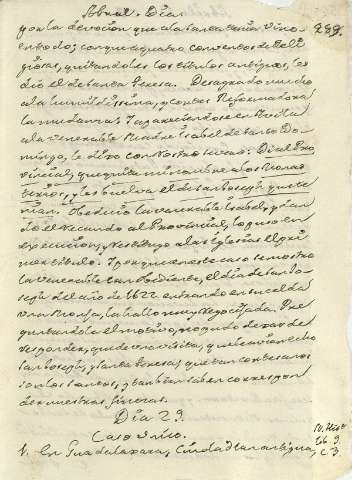 Abril. Dia
por la devocion que a la Santa tenia vino
en todo; con que a quatro conventos de Reli
giosas, quitandoles los titulos antiguos, les
dio el de Santa Teresa. Desagradó mucho
a la humildissima, y contra Reformadora
la mudanza. Y apareciendose en Sevilla
a la venerable Madre Isabel de Santo Do-
mingo, le dixo con rostro: Di al Pro
vincial, que quite mi nombre a los Monas
terios, y les buelva el de San Joseph que te
nian. Hizolo la venerable Isabel, y dan
do el recando al Provincial, lo puso en
execucion, y restituyo a las Iglesias el pri
mer titulo. Y porque en este caso se mostro
la venerable tan obediente, el dia de San Jo
seph del año de 1622 entrando en su celda
una Monja, la halló muy regocijada. Pre
guntando el motivo, no pudo dexar de
responder, que de una visita, que havian hecho
San Joseph, y Santa Teresa: que tan cortesanos
son los Santos, y tan bien saben correspon
der a nuestras finezas.
Dia 29.
Caso unico.
1. En Guadalaxara, Ciudad tan antigua,
299.
lib. 9.
C. 3